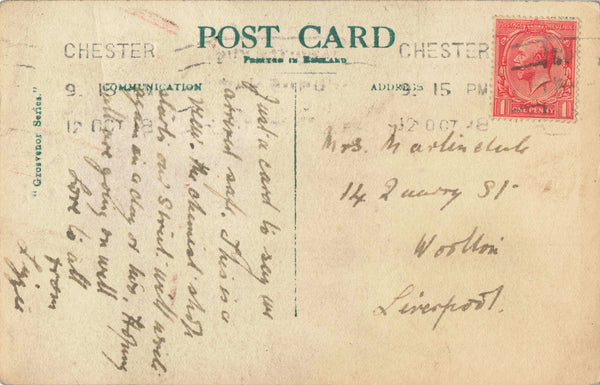 POST CARD
PRINTED IN ENGLAND
COMMUNICATION
ADDRESS
"Grosvenor Series."
CHESTER
9. 15
12 OCT 18
CHESTER
9. 15 PM
12 OCT 18
ONE PENNY
Just a card to say we
arrived safe. This is a
view. The chemist shop
starts on Street. will write
again in a day or two. Hoping
all are going on well
Love to all
from
Lizzie
Mrs. Martindale
14 Quarry St.
Woolton
Liverpool.